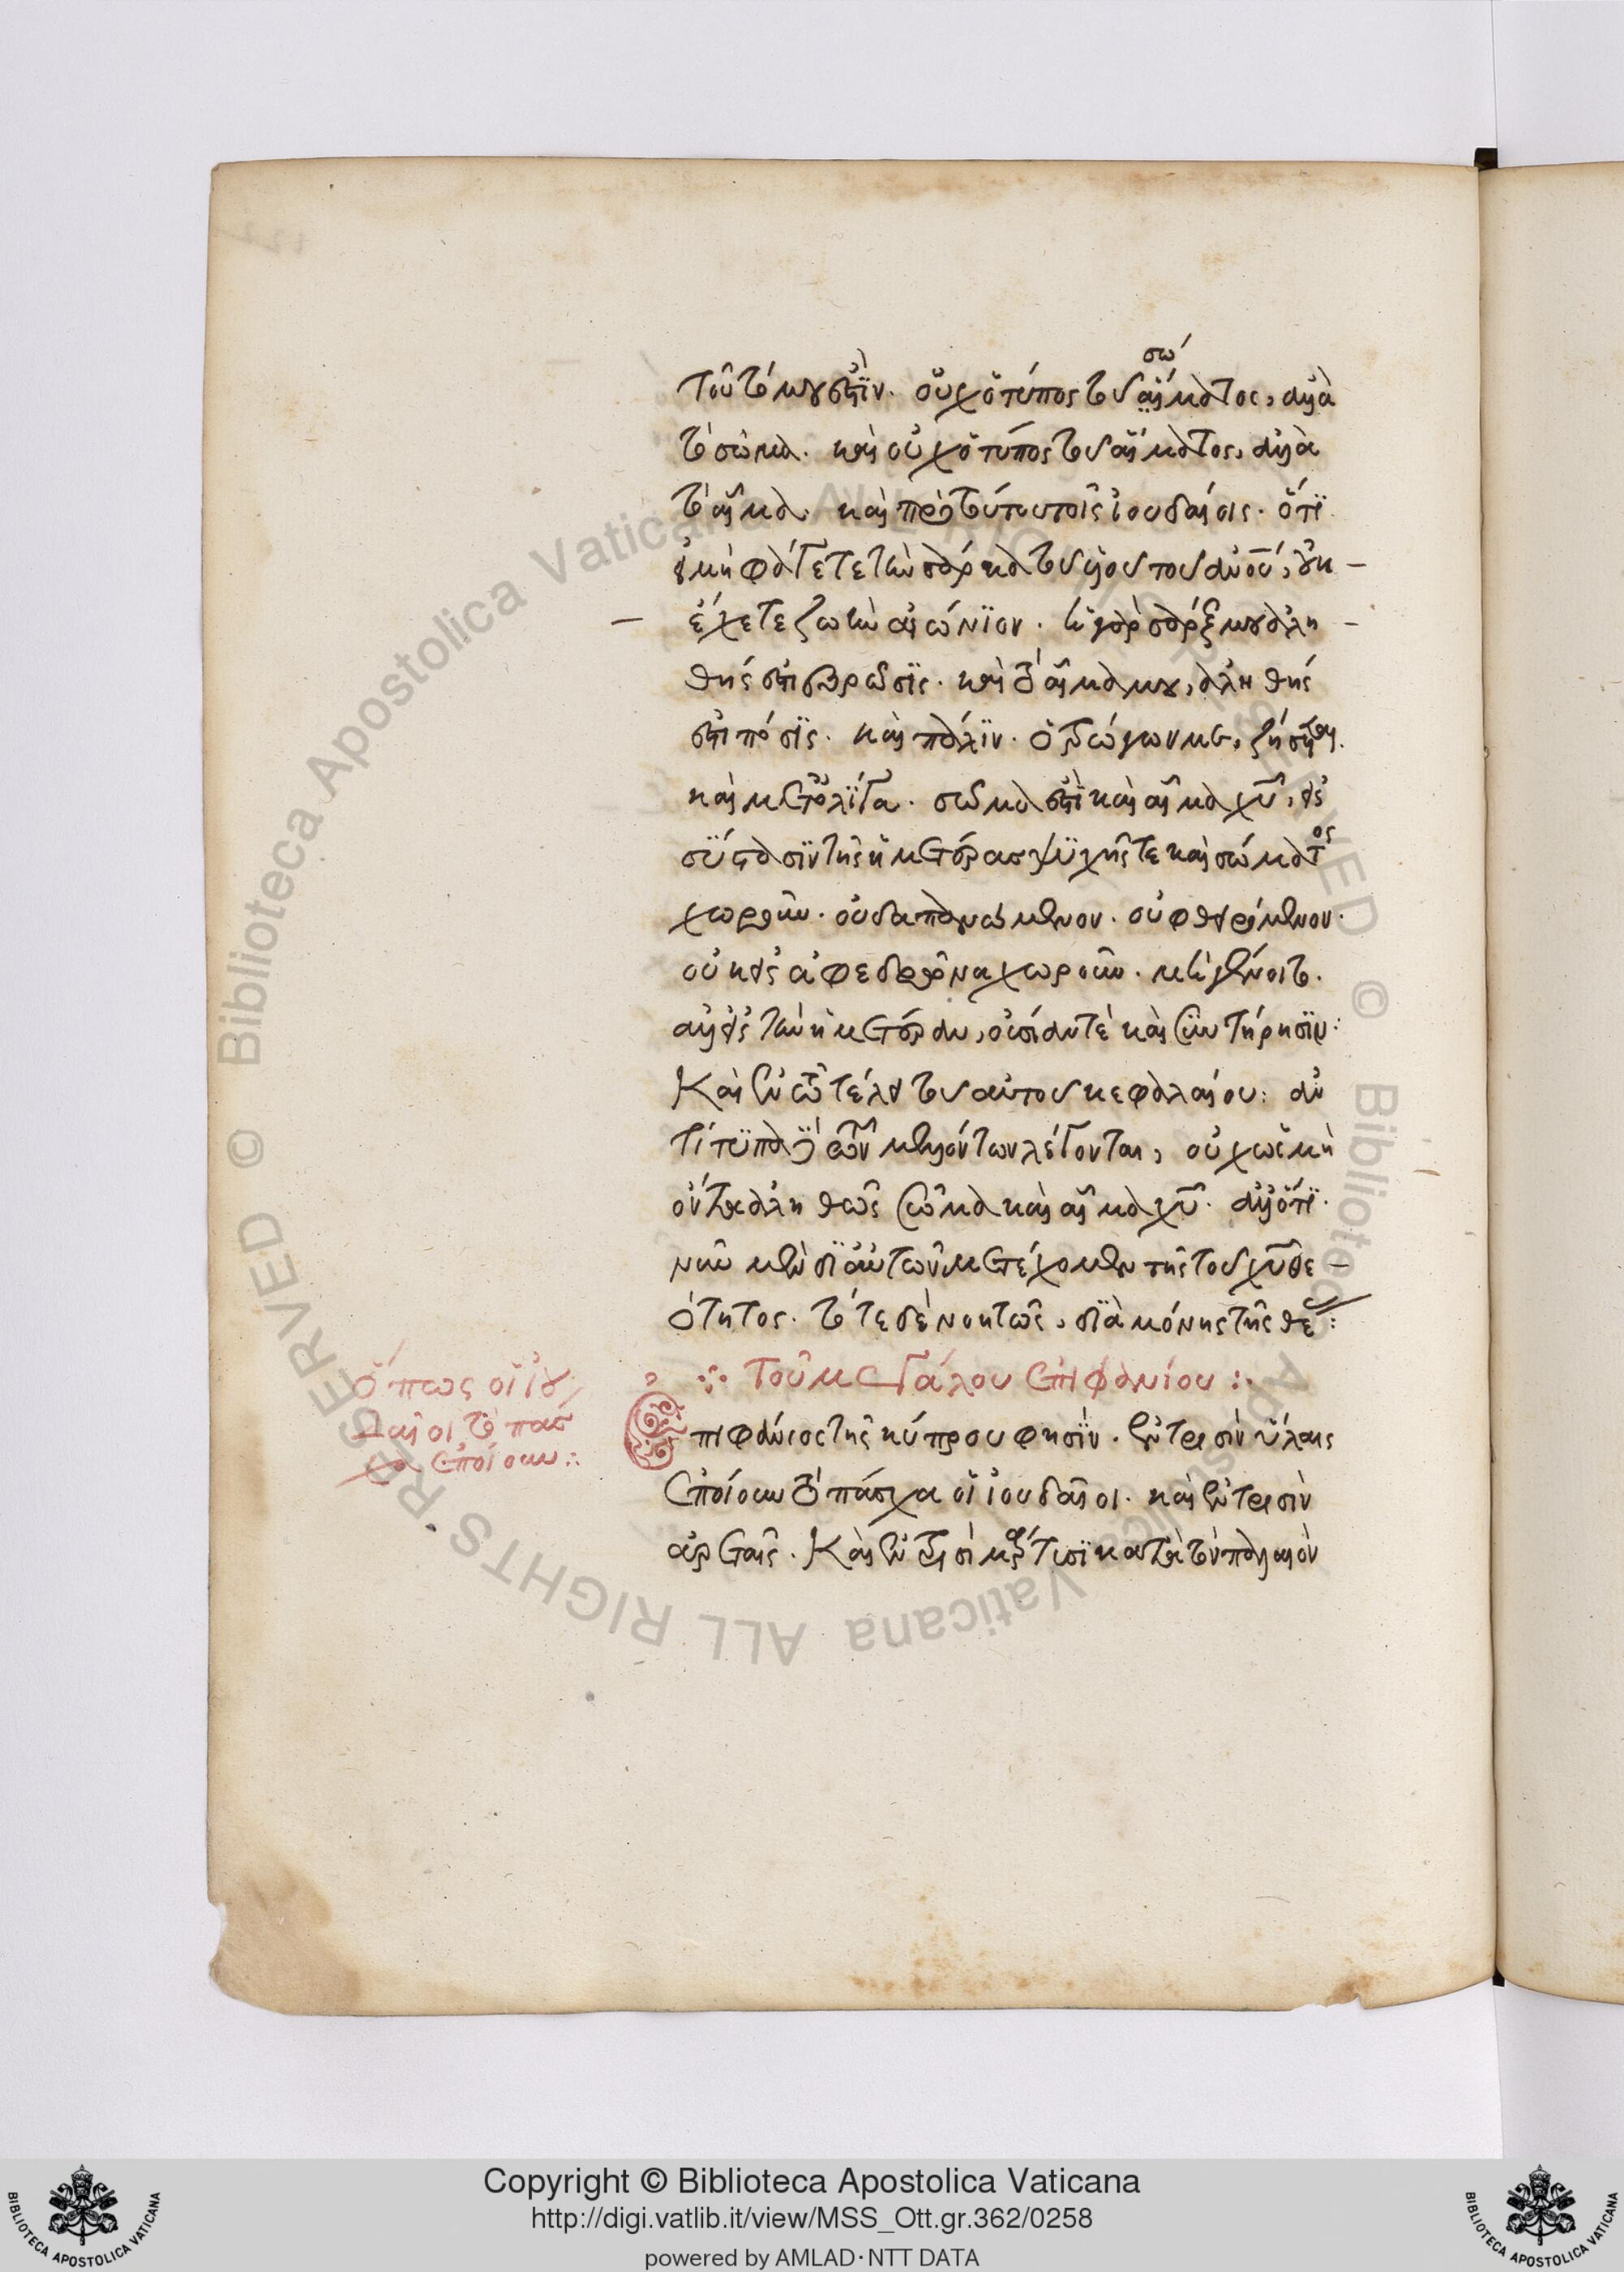 τοῦτό μου ἐστὶν. οὐχ ὁ τύπος τοῦ αἵματος, ἀλλὰ
σώ
τὸ σῶμα. καὶ οὐχ ὁ τύπος τοῦ αἵματος, ἀλλὰ
τὸ αἷμα. καὶ πρὸ τούτου τοῖς ἰουδαίοις. ὅτι
εἰ μὴ φάγετε τὴν σάρκα τοῦ υἱοῦ τοῦ ἀνου, οὐκ –
– ἔχετε ζωὴν αἰώνιον. ἡ γὰρ σάρξ μου ἀλη –
θής ἐστι βρῶσις. καὶ τὸ αἷμά μου, ἀληθής
ἐστι πόσις. καὶ πάλιν. ὁ τρώγων με, ζήσεται.
καὶ μετ' ὀλίγα. σῶμά ἐστι καὶ αἷμα χυ, εἰς
σύστασιν τῆς ἡμετέρας ψυχῆς τε καὶ σώματος
χωροῦν. οὐ δαπανώμενον. οὐ φθειρόμενον.
οὐκ εἰς ἀφεδρῶνα χωροῦν. μὴ γένοιτο.
ἀλλ' εἰς τὴν ἡμετέραν, οὐσίαν τὲ καὶ συντήρησιν:
Καὶ ἐν τῶ τέλει τοῦ αὐτοῦ κεφαλαίου: ἀν
τίτυπα τῶν μελλόντων λέγονται, οὐχ ὡς μὴ
ὄντα ἀληθῶς σῶμα καὶ αἷμα χυ. ἀλλ' ὅτι
νῦν μὲν δι' αὐτῶν μετέχομεν τῆς τοῦ χυ θε –
ότητος. τότε δὲ νοητῶς, διὰ μόνης τῆς θέ:
Τοῦ μεγάλου ἐπιφανίου :.
Ὅπως οἱ ἰου
δαῖοι τὸ πάσ
χα ἐποίουν :.
Ἐπιφάνιος τῆς κύπρου φησὶν. ἐν τρισὶν ὕλαις
ἐποίουν τὸ πάσχα οἱ ἰουδαῖοι. καὶ ἐν τρισὶν
Καὶ ἐν τρισὶ κατὰ τὸν παλαιὸν
Copyright © Biblioteca Apostolica Vaticana
http://digi.vatlib.it/view/MSS_Ott.gr.362/0258
powered by AMLAD·NTT DATA